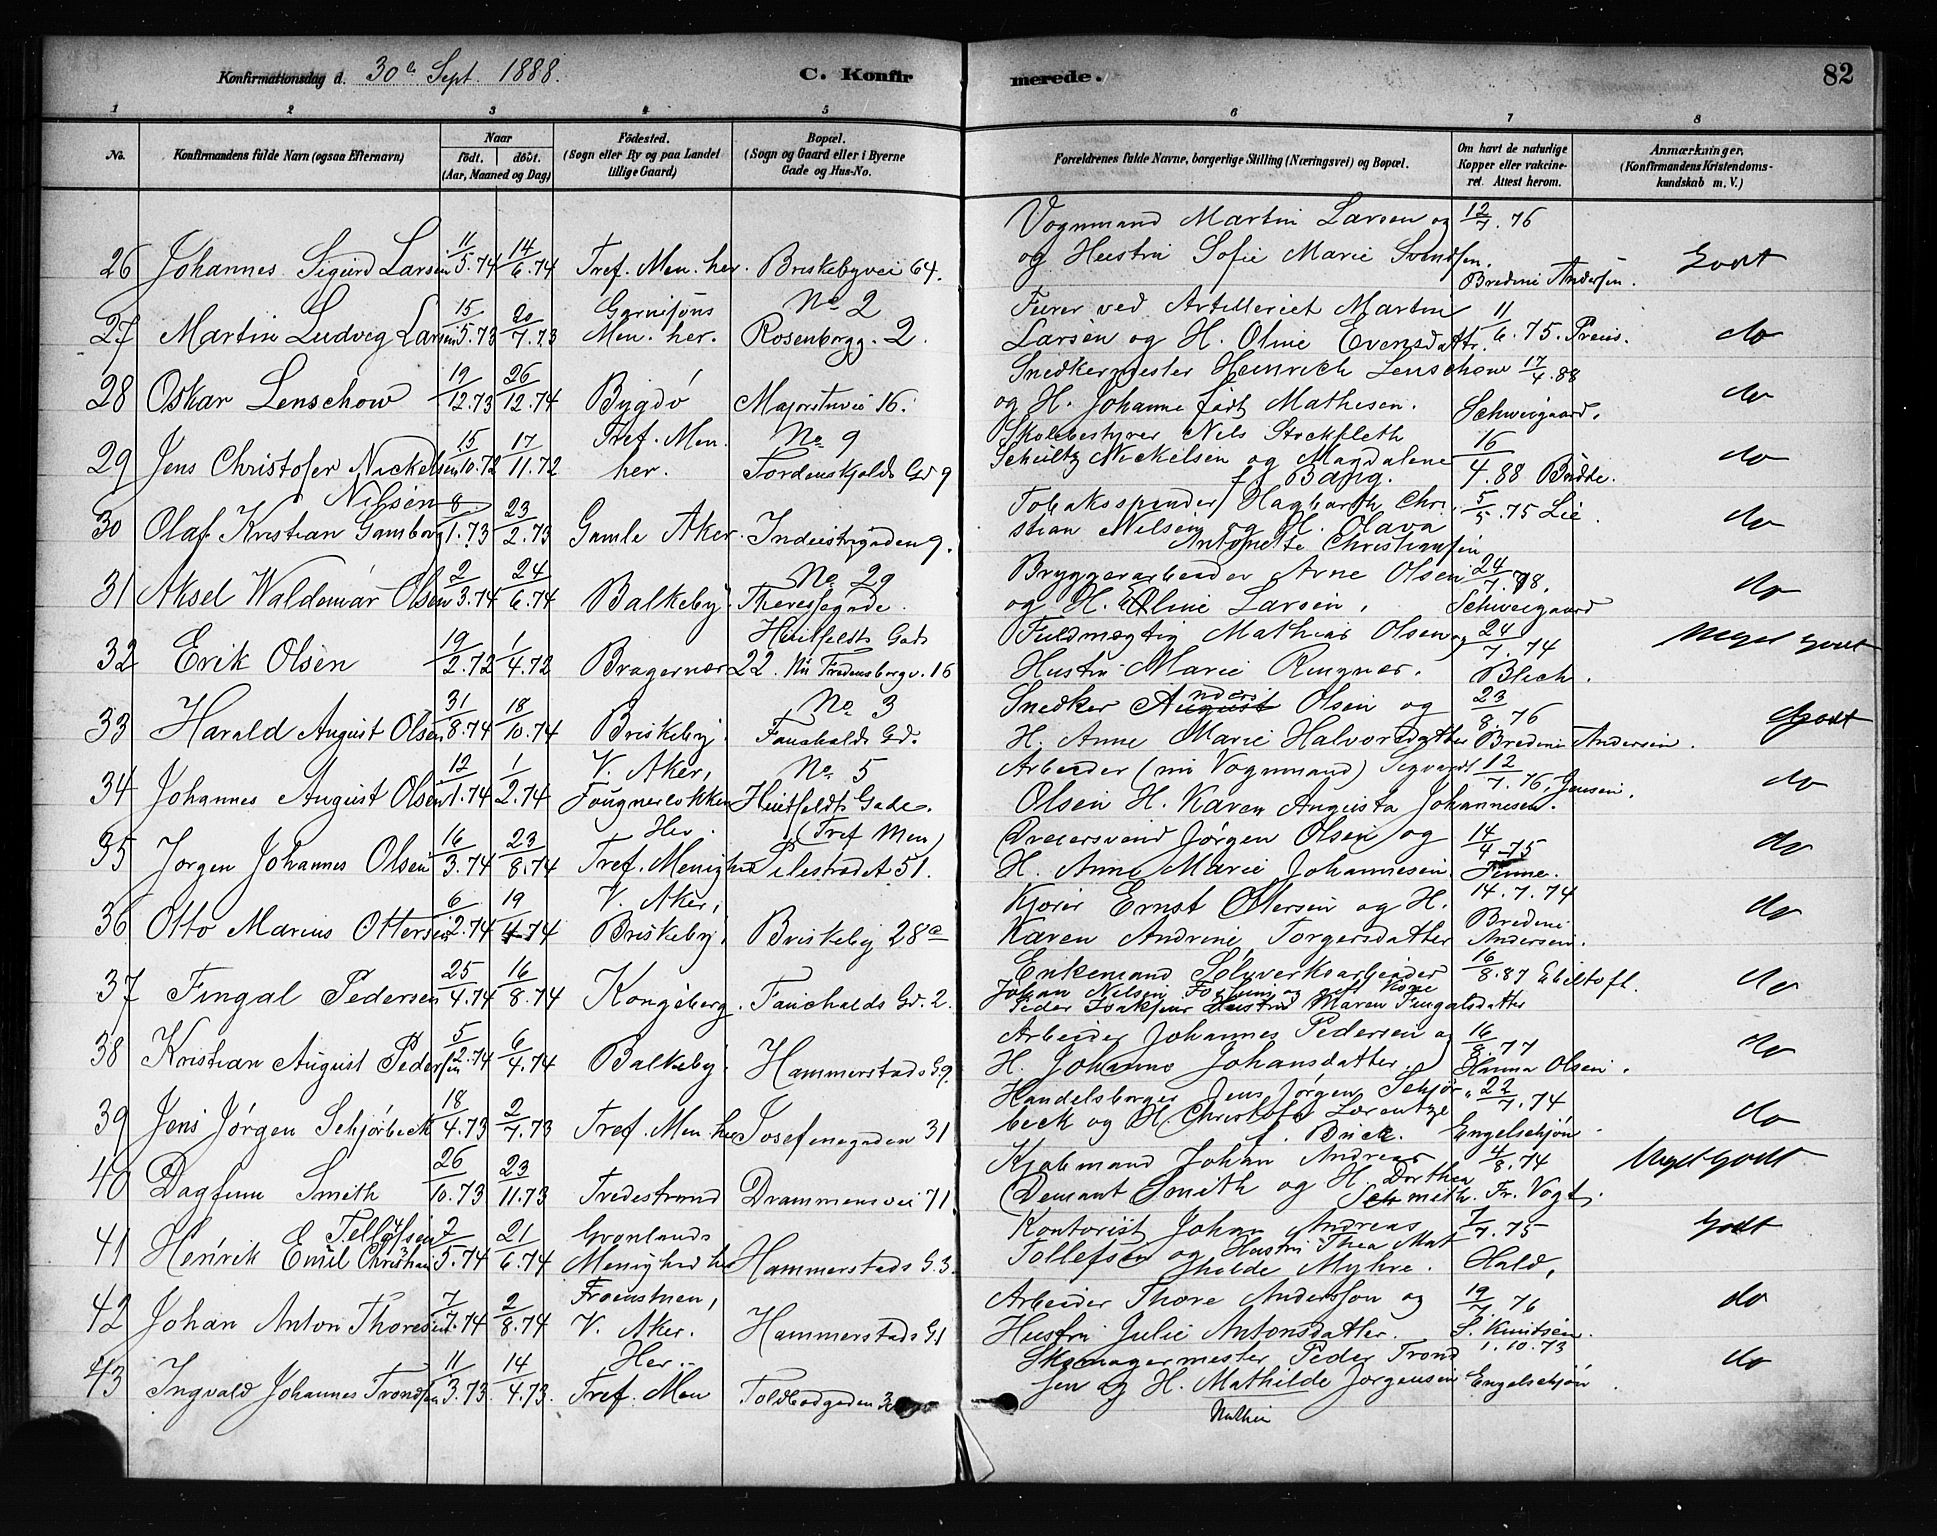 Konfirmationsdag d. 30te Sept. 1888.
C. Konfirmerede.
82
1 2 3 4 5 6 7 8
No.
Konfirmandens fulde Navn (ogsaa Efternavn)
Naar
födt. döbt.
(Aar, Maaned og Dag)
Födested.
(Sogn eller By og paa Landet
tillige Gaard)
Bopæl.
(Sogn og Gaard eller i Byerne
Gade og Hus-No.
Forældrenes fulde Navne, borgerlige Stilling (Næringsvei) og Bopæl.
Om havt de naturlige
Kopper eller vakcine-
ret. Attest herom.
Anmærkninger,
(Konfirmandens Kristendoms-
kundskab m. V.)
26 Johannes Sigurd Larsen 11/5.74 14/6.74 Tref. Men. her. Briskebyvei 64.
Vognmand Martin Larsen og 12/7.76
og Hustru Sofie Marie Svendsen. Bredine Andersen. Godt
27 Martin Ludvig Larsen 15/5.73 20/7.73 Garnisons Men. her. No 2 Rosenborgg. 2.
Furer ved Artilleriet Martin 11/6.75. Preus.
Larsen og H. Oline Evensdattr. do
28 Oskar Lenschow 19/12.73 26/12.74 Bygdö Majorstuvei 16.
Snedkermester Heinrich Lenschow 17/4.88
og H. Johanne født Mathesen. Schweigaard. do
29 Jens Christofer Nickelsen 15/10.72 17/11.72 Tref. Men. her. No 9 Tordenskjolds Gd 9
Skolebestyrer Nils Stockfleth 16/4.88 Budde.
Schultz Nickelsen og Magdalene
f. Bang. do
30 Olaf Kristian Gamborg Nilsen 8/1.73 23/2.73 Gamle Aker. Industrigaden 9.
Tobaksspinder Hagbarth Chri 5/5.75 Lie
stian Nilsen og H. Olava
Antonette Christiansen do
31 Aksel Waldemar Olsen 2/3.74 24/6.74 Balkeby. No 29 Theresegade.
Bryggerarbeider Arne Olsen 24/7.78.
og H. Oline Larsen. Schweigaard do
32 Erik Olsen 19/2.72 1/4.72 Bragernær Huitfeldts Gade 22. Nu Fredensborgv. 16
Fuldmægtig Mathias Olsen og 24/7.74
Hustru Marie Ringner. Blich. Meget Godt
33 Harald August Olsen 31/8.74 18/10.74 Briskeby. No 3 Fauchalds Gd.
Snedker Anders Olsen og 23/8.76
H. Anne Marie Halvorsdatter Bredine Andersen. Godt
34 Johannes August Olsen 12/1.74 1/2.74 V. Aker, Fougnerløkken No 5 Huitfeldts Gade.
Arbeider (nu Vognmand) Sigvardt 12/7.76, Jensen.
Olsen H. Karen Augusta Johannesen. do
35 Jørgen Johannes Olsen 16/3.74 23/8.74 Her. Tref. Menighed (Tref Men) Pilestrædet 51.
Dreiersvend Jørgen Olsen og 14/4-75
H. Anne Marie Johannesen. Finne. do
36 Otto Marius Ottersen 6/2.74 19/4.74 V. Aker, Briskeby, Briskeby 28a
Kjører Ernst Ottersen og H. 14.7.74
Karen Andrine Torgersdatter Bredine Andersen. do
37 Fingal Pedersen 25/4.74 16/8.74 Kongsberg. Fauchalds Gd. 2.
Enkemand Sølvverksarbeider 16/8.87 Ebeltoft.
Johan Nilsen
Peder Isaksen Hustru Maren Fingalsdatter do
38 Kristian August Pedersen 5/2.74 6/4.74 Balkeby. Hammerstads G.9.
Arbeider Johannes Pedersen og 16/8.77
H. Johanne Johansdatter. Hanna Olsen. do
39 Jens Jörgen Schjörbeck 18/4.73 2/7.73 Tref. Men. her Josefinegaden 31
Handelsborger Jens Jørgen Schjør- 22/7.74
beck og H. Christofa Lorentze
f. Brick. Engelschjøn. do
40 Dagfinn Smith 26/10.73 23/11.73 Tvedestrand Drammensvei 71.
Kjøbmand Johan Andreas 4/8.74
Demant Smith og H. Dorthea
Schmith. Fr. Vogt. Meget Godt
41 Henrik Emil Christian Tellefsen 2/5.74 21/6.74 Grønlands Menighed her Hammerstads G.3.
Kontorist Johan Andreas 7/7.75
Tollefsen og Hustru Thea Mat
hilde Myhre. Hald. Godt
42 Johan Anton Thoresen 7/7.74 2/8.74 V. Aker. Hammerstads G.1
Arbeider Thore Anderson og 19/7.76
Hustru Julie Antonsdatter. S. Knudsen. do
43 Ingvald Johannes Trondsen 11/3.73. 14/4.73. Her. Tref. Men Toldbodgaden
Skomagermester Peder Trond 1.10.73
sen og H. Mathilde Jørgensen Engelschjøn. do